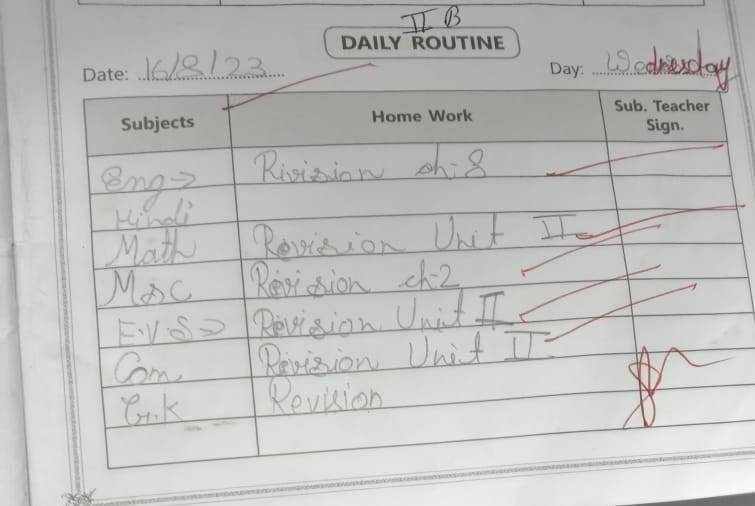 II B
DAILY ROUTINE
Date: 16/8/23 Day: Wednesday
Subjects Home Work Sub. Teacher Sign.
Eng→ Rivision ch-8
Hindi
Math Revision Unit II
MSC Revision ch-2
E.V.S→ Revision Unit II
Com Revision Unit II
G.K Revision